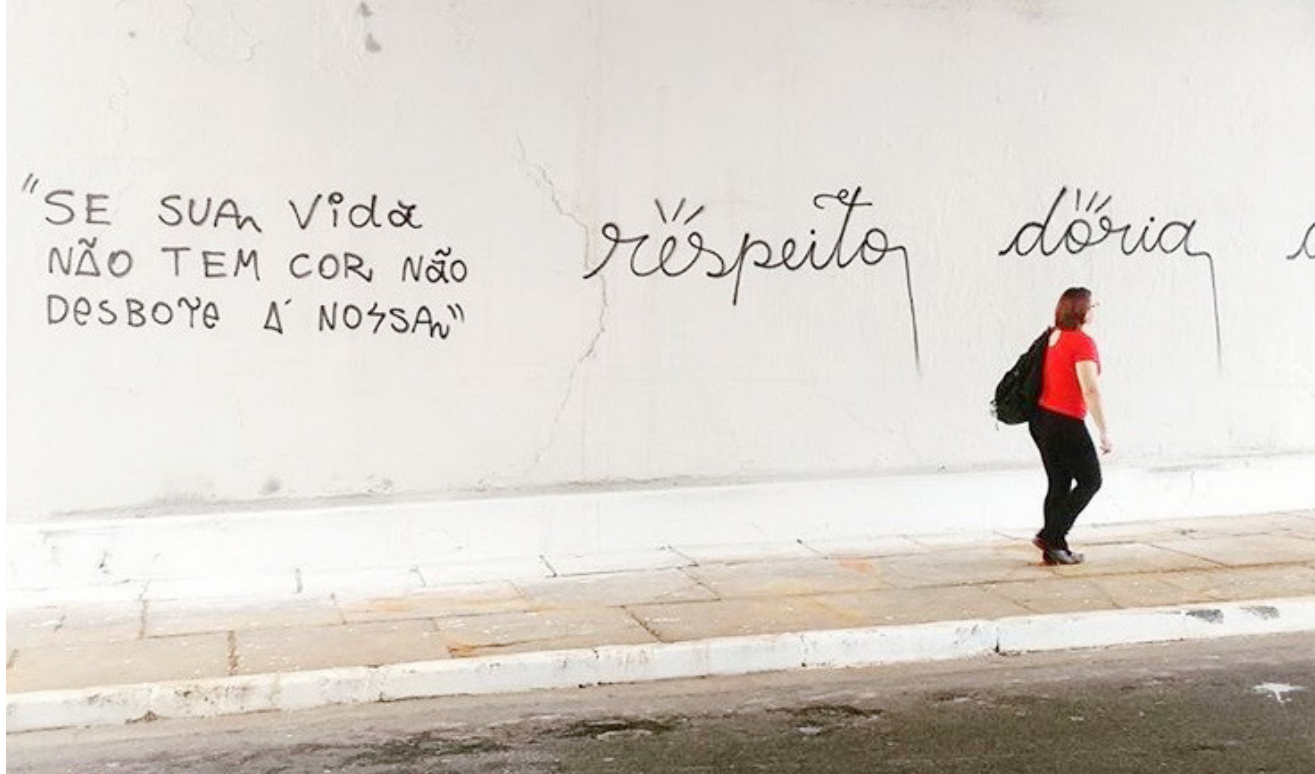 "SE SUA Vida
NÃO TEM COR NãO
DesBOTe A' NOSSA"
respeito
dória